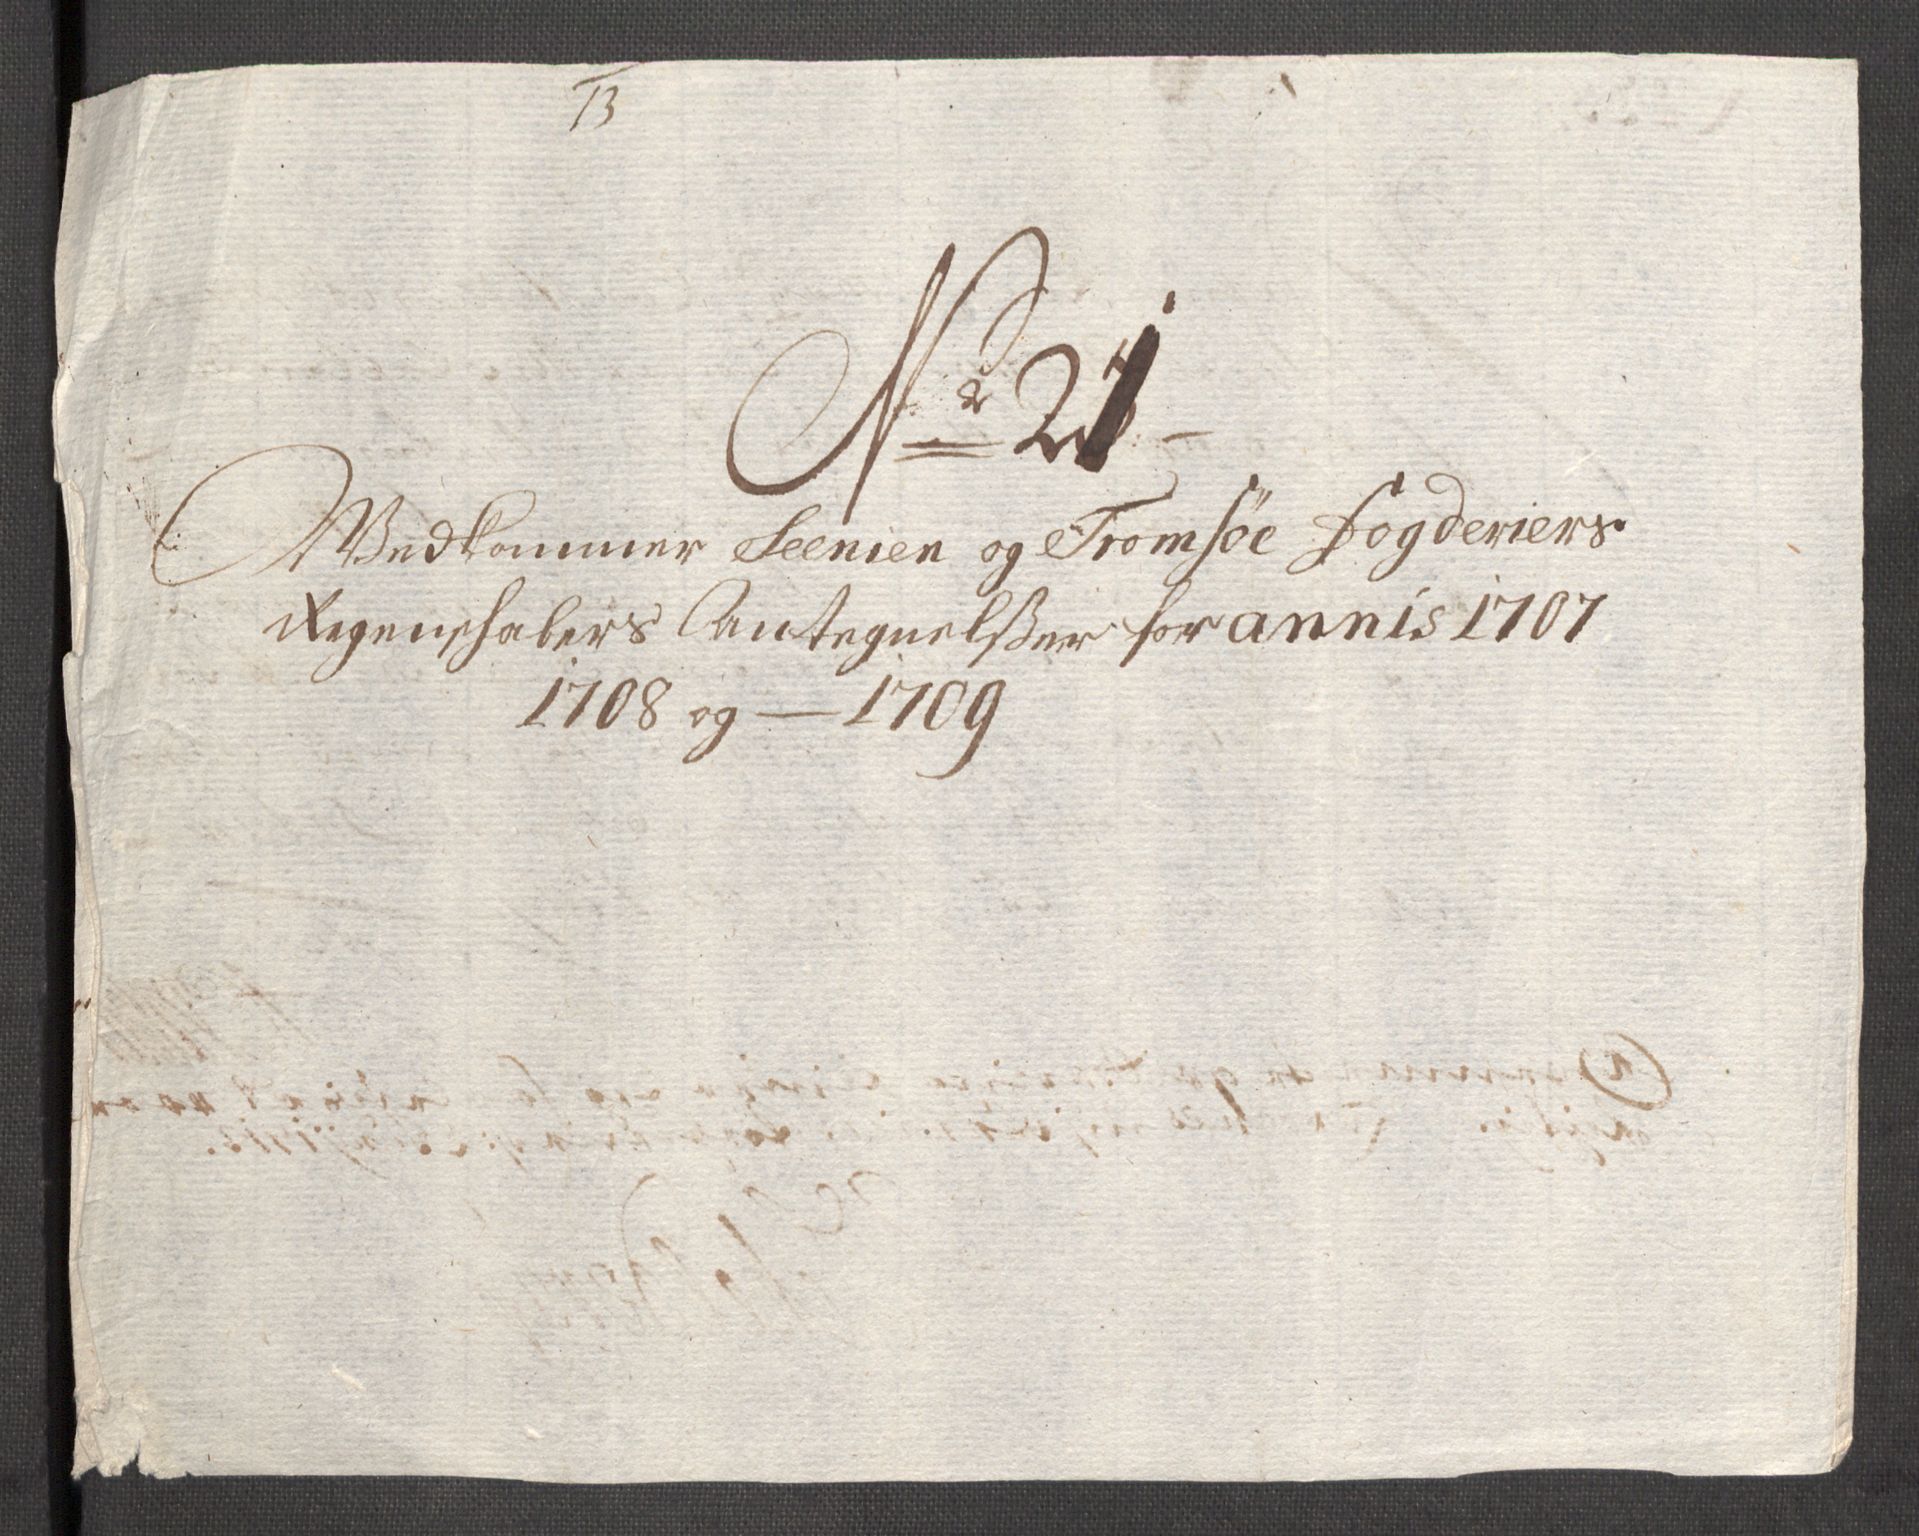 13
No 21
Vedkommer Seenien og Tromsöe Fogderiers
Regenschabers Antegnelsser for annis 1707
1708 og — 1709